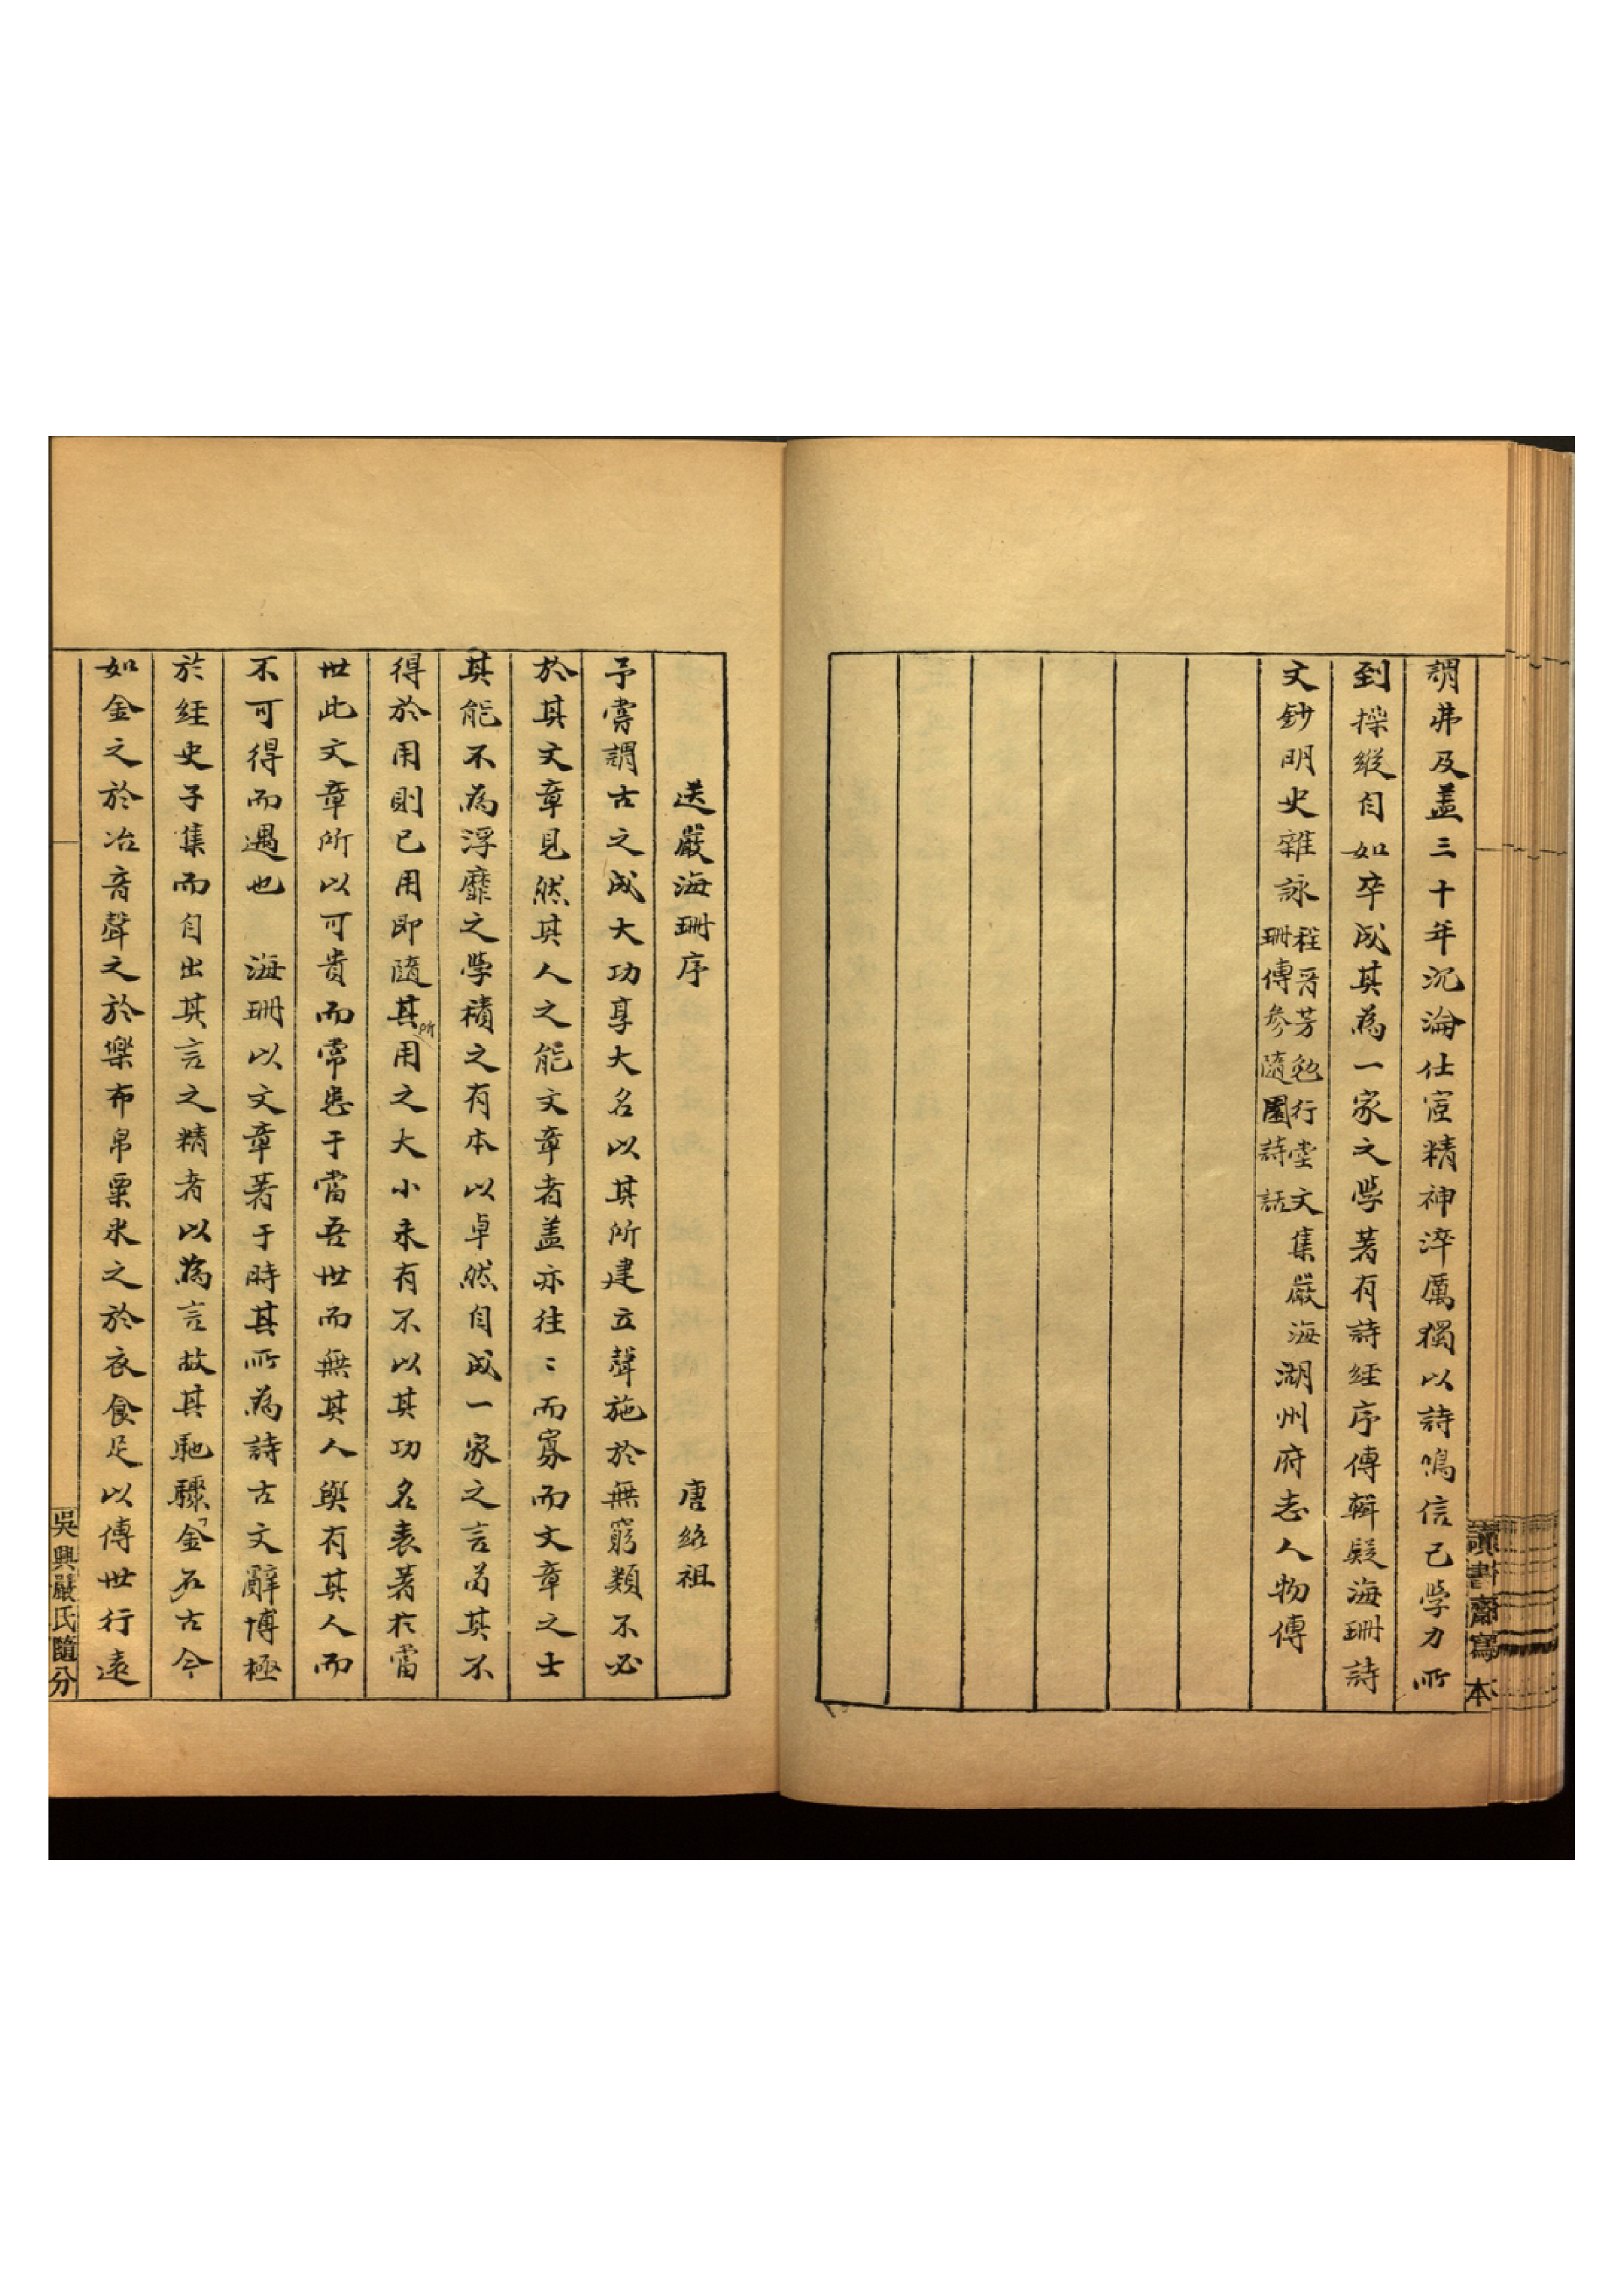 謂弗及蓋三十年沉淪仕宦精神淬厲獨以詩鳴信已學力所
到操縱自如卒成其為一家之學著有詩經序傳輯疑海珊詩
文鈔明史雜詠程晋芳勉行堂文集嚴海珊傳參隨園詩話湖州府志人物傳
讀書齋寫本
送嚴海珊序 唐紹祖
予嘗謂古之成大功享大名以其所建立聲施於無窮類不必
於其文章見然其人之能文章者盖亦往〻而寡而文章之士
其能不為浮靡之學積之有本以卓然自成一家之言苟其不
得於用則已用即隨其所用之大小未有不以其功名表著扵當
世此文章所以可貴而常患于當吾世而無其人與有其人而
不可得而遇也 海珊以文章著于時其所為詩古文辭博極
於經史子集而自出其言之精者以為言故其馳驟金石古今
如金之於冶音聲之於樂布帛粟米之於衣食足以傳世行遠
吳興嚴氏隨分